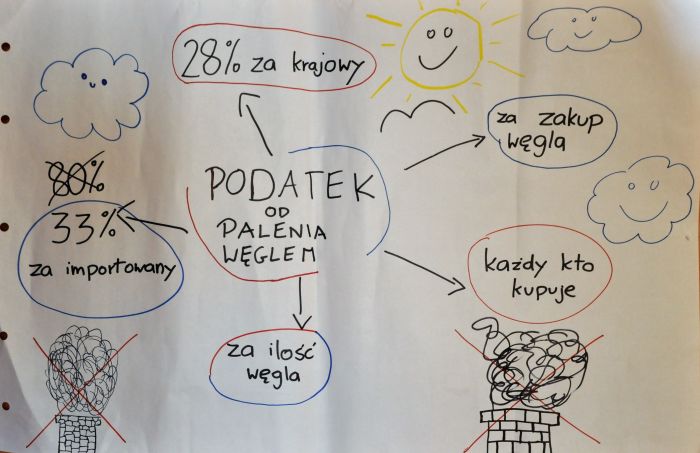 28% za krajowy
za zakup
węgla
80%
33%
za importowany
PODATEK
OD
PALENIA
WĘGLEM
każdy kto
kupuje
za ilość
węgla